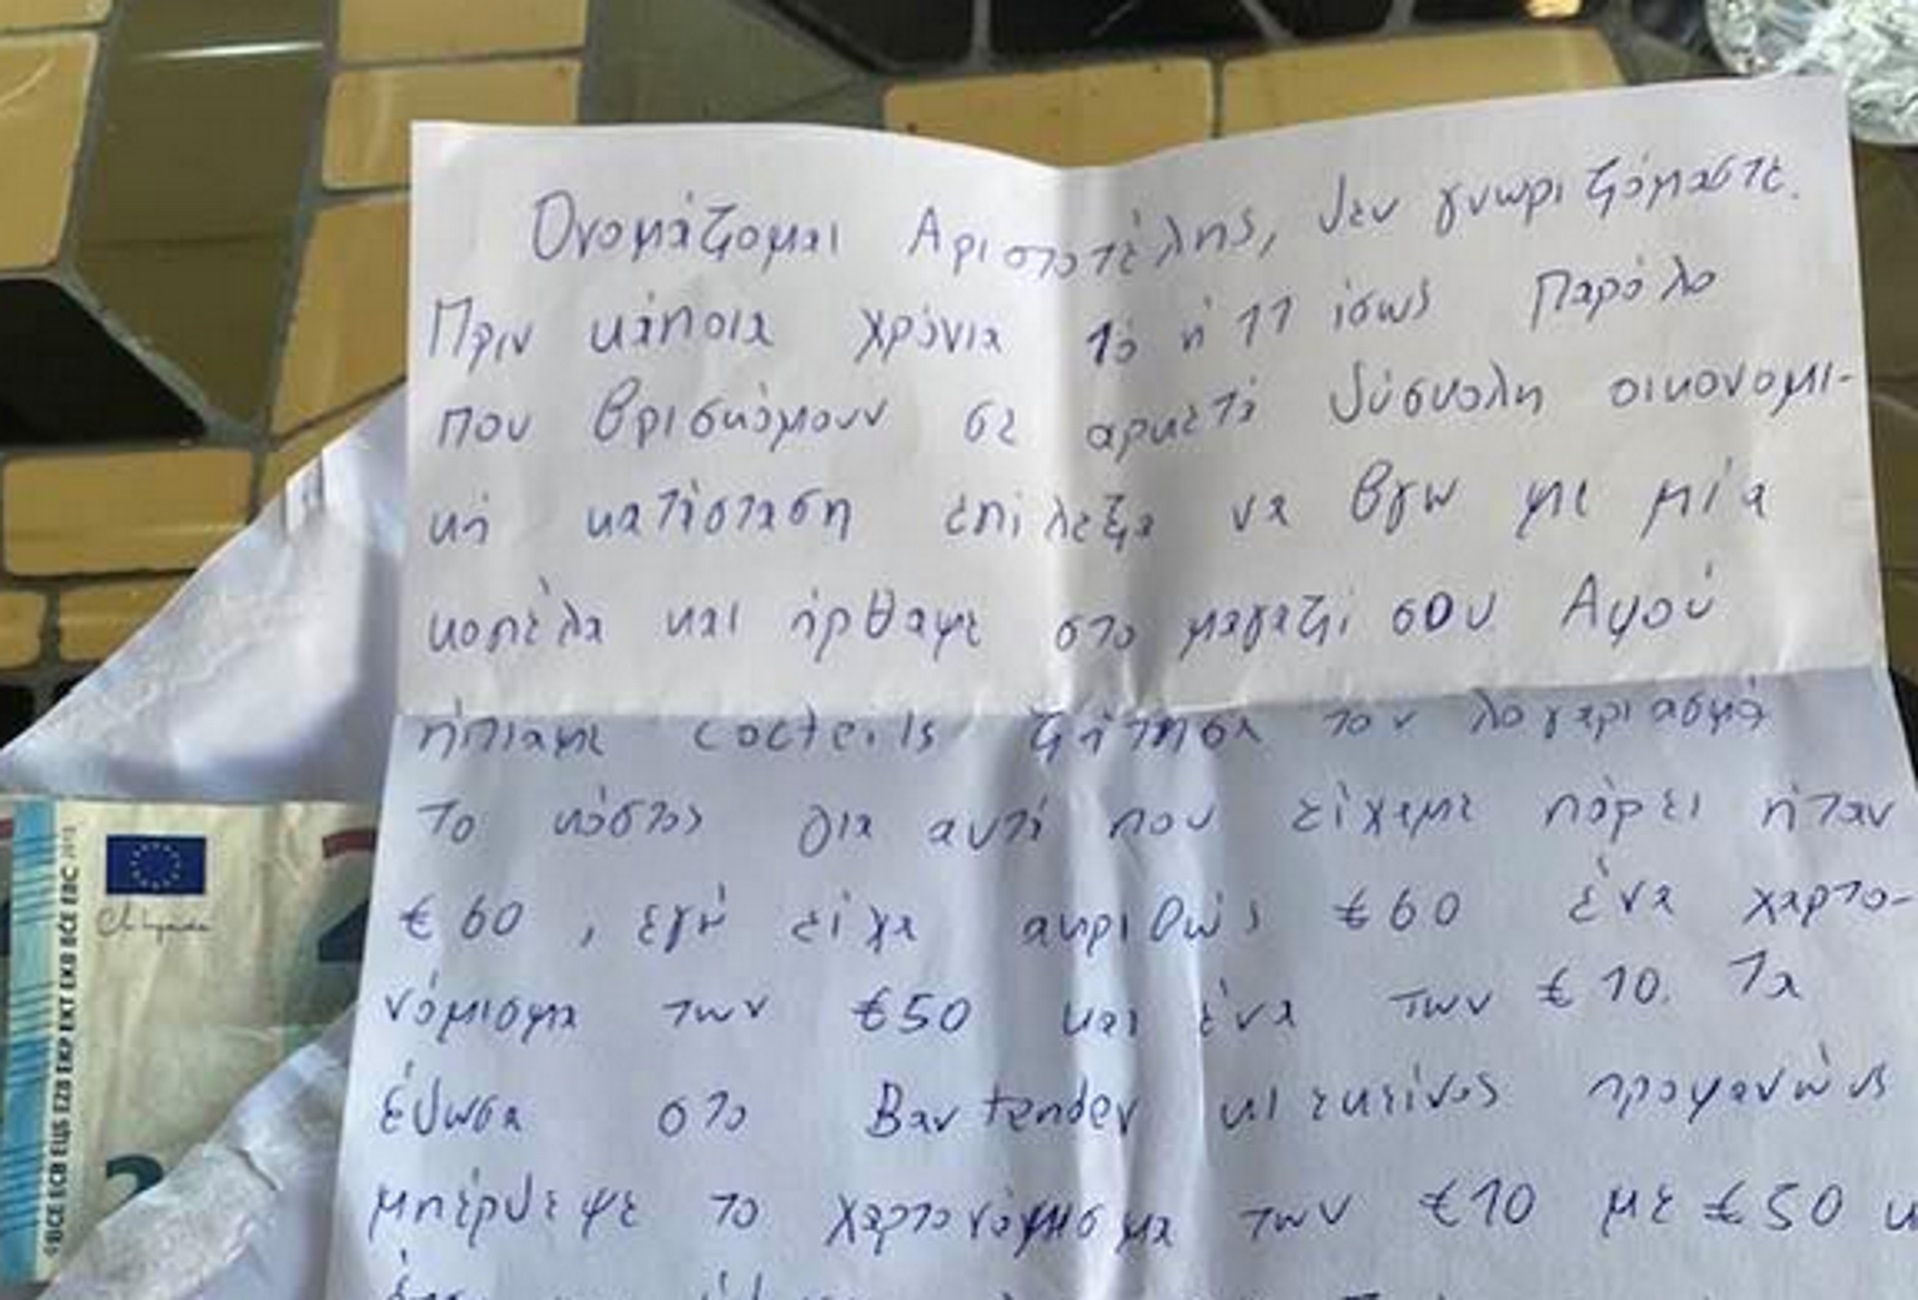 Ονομάζομαι Αριστοτέλης, δεν γνωριζόμαστε.
Πριν κάποια χρόνια 10 ή 11 ίσως Παρόλο
που βρισκόμουν σε αρκετά δύσκολη οικονομι-
κή κατάσταση επίλεξα να βγω με μία
κοπέλα και ήρθαμε στο μαγαζί σου Αφού
ήπιαμε cocteils ζήτησα τον λογαριασμό
το κόστος για αυτά που είχαμε πάρει ήταν
€60, εγώ είχα ακριβώς €60 ένα χαρτο-
νόμισμα των €50 και ένα των €10. Τα
έδωσα στο Bartender κι εκείνος προφανώς
μπέρδεψε το χαρτονόμισμα των €10 με €50 κ
BCE ECB ЕЦБ EZB EKP EKT EKB BCE EBC 2015